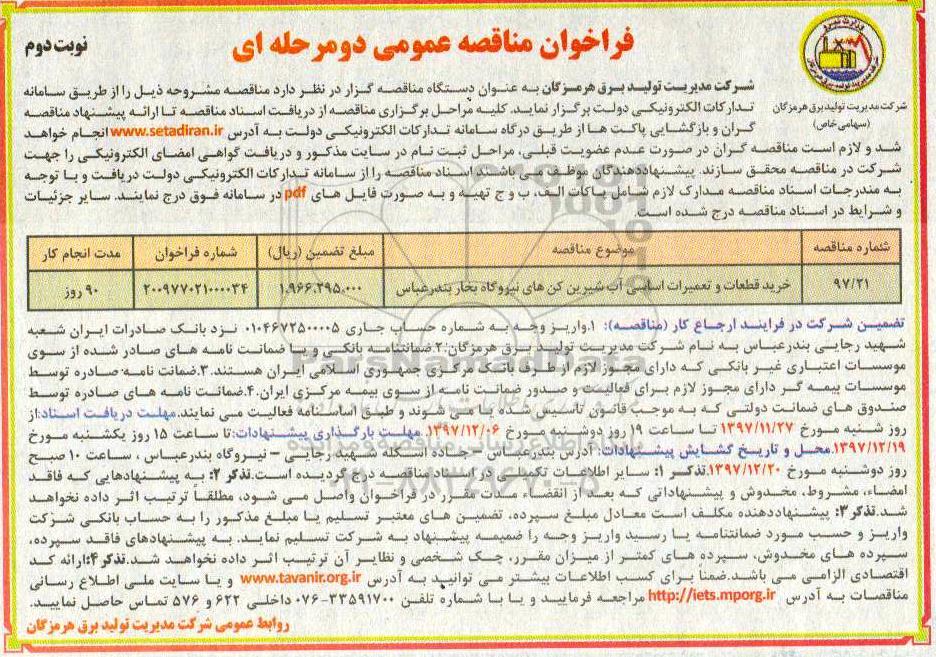 فراخوان مناقصه عمومی دومرحله ای
نوبت دوم
شرکت مدیریت تولیدبرق هرمزگان
(سهامی خاص)
شرکت مدیریت تولید برق هرمزگان به عنوان دستگاه مناقصه گزار در نظر دارد مناقصه مشروحه ذیل را از طریق سامانه
تدارکات الکترونیکی دولت برگزار نماید. کلیه مراحل برگزاری مناقصه از دریافت اسناد مناقصه تا ارائه پیشنهاد مناقصه
گران و بازگشایی پاکت ها از طریق درگاه سامانه تدارکات الکترونیکی دولت به آدرس www.setadiran.ir انجام خواهد
شد و لازم است مناقصه گران در صورت عدم عضویت قبلی، مراحل ثبت نام در سایت مذکور و دریافت گواهی امضای الکترونیکی را جهت
شرکت در مناقصه محقق سازند. پیشنهاددهندگان موظف می باشند اسناد مناقصه را از سامانه تدارکات الکترونیکی دولت دریافت و با توجه
به مندرجات اسناد مناقصه مدارک لازم شامل پاکات الف، ب و ج تهیه و به صورت فایل های pdf در سامانه فوق درج نمایند. سایر جزئیات
و شرایط در اسناد مناقصه درج شده است.
شماره مناقصه موضوع مناقصه مبلغ تضمین (ریال) شماره فراخوان مدت انجام کار
۹۷/۲۱ خرید قطعات و تعمیرات اساسی آب شیرین کن های نیروگاه بخار بندرعباس ۱.۹۶۶.۲۹۵.۰۰۰ ۲۰۰۹۷۷۰۲۱۰۰۰۰۳۴ ۹۰ روز
تضمین شرکت در فرایند ارجاع کار (مناقصه): ۱.واریز وجه به شماره حساب جاری ۰۱۰۴۶۷۲۵۰۰۰۰۵ نزد بانک صادرات ایران شعبه
شهید رجایی بندرعباس به نام شرکت مدیریت تولید برق هرمزگان ۲.ضمانتنامه بانکی و یا ضمانت نامه های صادر شده از سوی
موسسات اعتباری غیر بانکی که دارای مجوز لازم از طرف بانک مرکزی جمهوری اسلامی ایران هستند.۳.ضمانت نامه صادره توسط
موسسات بیمه گر دارای مجوز لازم برای فعالیت و صدور ضمانت نامه از سوی بیمه مرکزی ایران.۴.ضمانت نامه های صادره توسط
صندوق های ضمانت دولتی که به موجب قانون تاسیس شده یا می شوند و طبق اساسنامه فعالیت می نمایند.مهلت دریافت اسناد:از
روز شنبه مورخ ۱۳۹۷/۱۱/۲۷ تا ساعت ۱۹ روز دوشنبه مورخ ۱۳۹۷/۱۲/۰۶. مهلت بارگذاری پیشنهادات:تا ساعت ۱۵ روز یکشنبه مورخ
۱۳۹۷/۱۲/۱۹.محل و تاریخ گشایش پیشنهادات: آدرس بندرعباس – جاده اسکله شهید رجایی – نیروگاه بندرعباس ، ساعت ۱۰ صبح
روز دوشنبه مورخ ۱۳۹۷/۱۲/۲۰.تذکر ۱: سایر اطلاعات تکمیلی در اسناد مناقصه درج گردیده است.تذکر ۲: به پیشنهادهایی که فاقد
امضاء، مشروط، مخدوش و پیشنهاداتی که بعد از انقضاء مدت مقرر در فراخوان واصل می شود، مطلقا ترتیب اثر داده نخواهد
شد.تذکر ۳: پیشنهاددهنده مکلف است معادل مبلغ سپرده، تضمین های معتبر تسلیم یا مبلغ مذکور را به حساب بانکی شرکت
واریز و حسب مورد ضمانتنامه یا رسید واریز وجه را ضمیمه پیشنهاد به شرکت تسلیم نماید. به پیشنهادهای فاقد سپرده،
سپرده های مخدوش، سپرده های کمتر از میزان مقرر، چک شخصی و نظایر آن ترتیب اثر داده نخواهد شد.تذکر ۴:ارائه کد
اقتصادی الزامی می باشد.ضمنا برای کسب اطلاعات بیشتر می توانید به آدرس www.tavanir.org.ir و یا سایت ملی اطلاع رسانی
مناقصات به آدرس http://iets.mporg.ir مراجعه فرمایید و یا با شماره تلفن ۳۳۵۹۱۷۰۰-۰۷۶ داخلی ۶۲۲ و ۵۷۶ تماس حاصل نمایید.
روابط عمومی شرکت مدیریت تولید برق هرمزگان